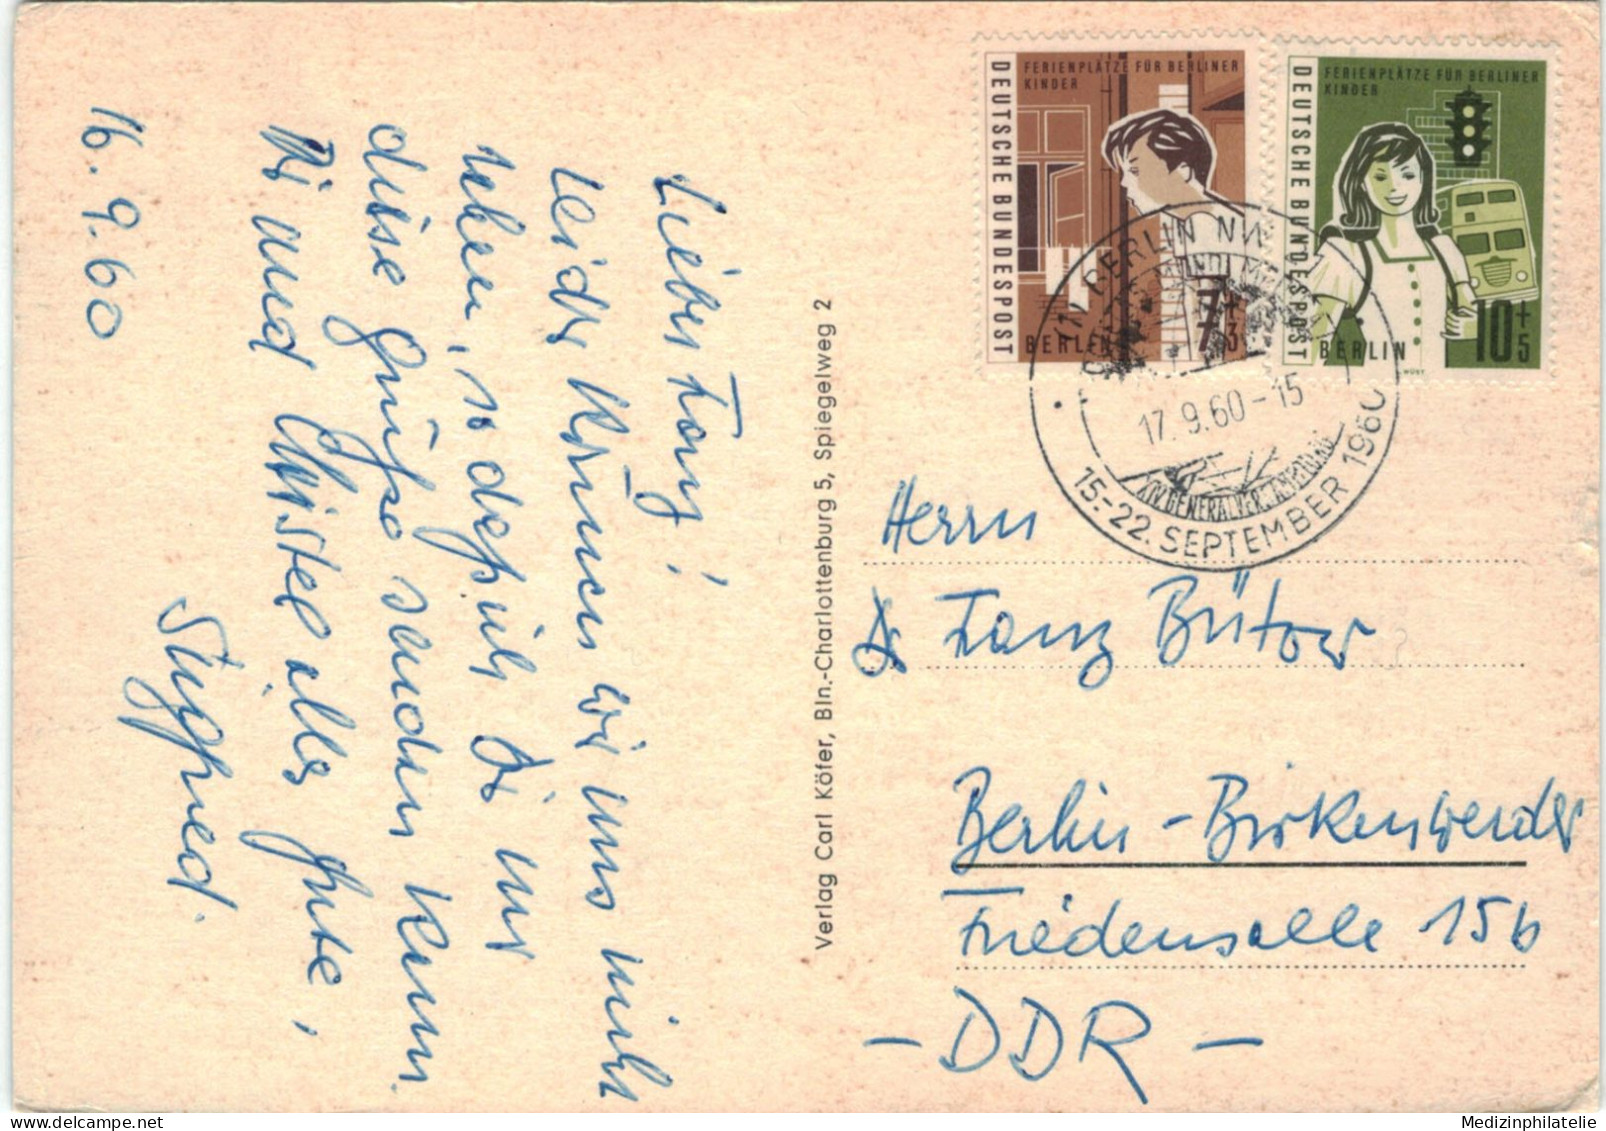 16. 9. 60
Lieber Franz!
Leider können wir uns nicht
sehen, so daß ich Dir nur
diese Grüße senden kann.
Dir und Christel alles Gute,
Siegfried.
Verlag Carl Köfer, Bln.-Charlottenburg 5, Spiegelweg 2
FERIENPLÄTZE FÜR BERLINER
KINDER
DEUTSCHE BUNDESPOST
BERLIN
7+3
FERIENPLÄTZE FÜR BERLINER
KINDER
DEUTSCHE BUNDESPOST
BERLIN
10+5
BERLIN NW
17.9.60-15
XIV. GENERALVERSAMMLUNG
15.-22. SEPTEMBER 1960
Herrn
Franz Bütow
Berlin-Birkenwerder
Friedensallee 15b
- DDR -
Medizinphilatelie